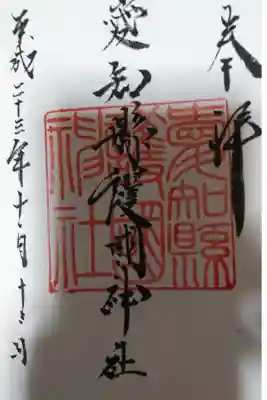 奉拝
愛知縣護國神社
愛知縣護國神社
平成二十三年十一月十三日